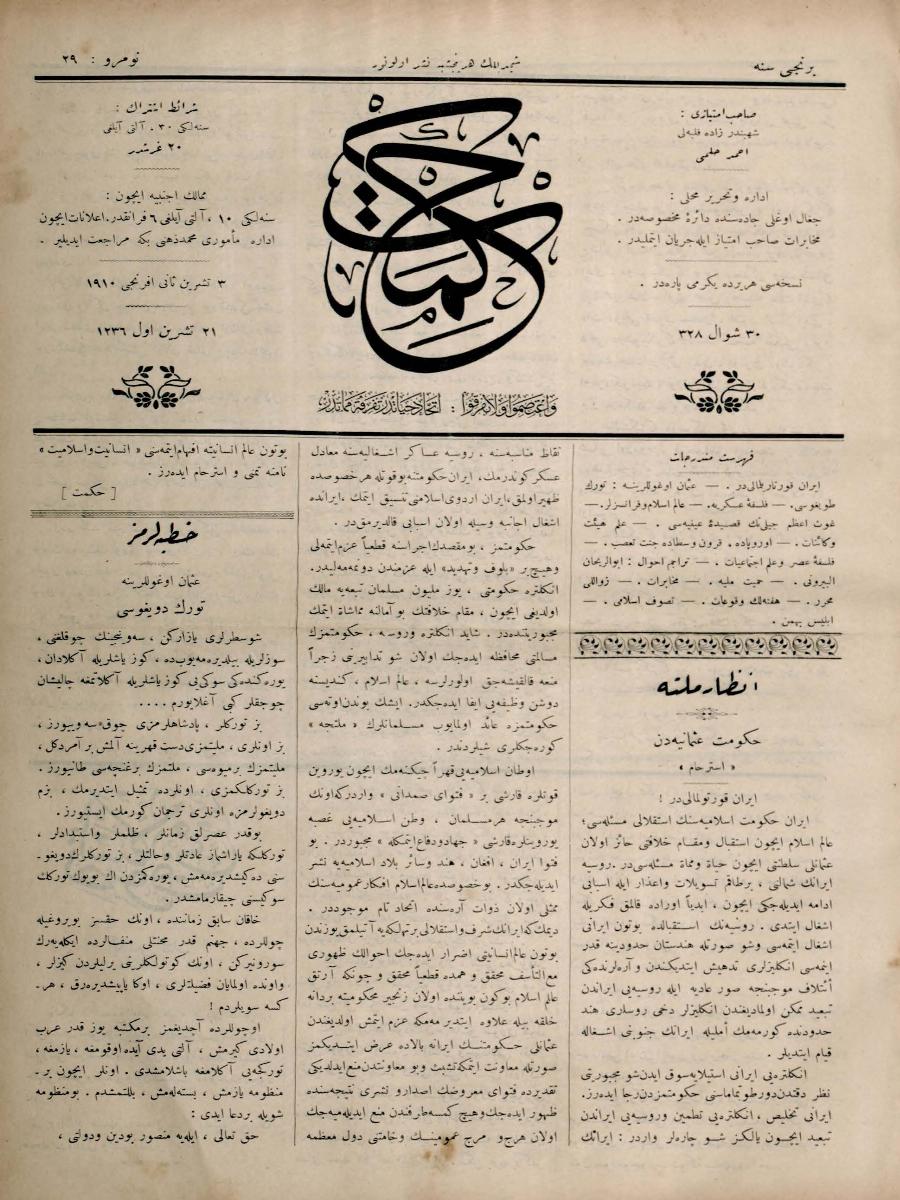 برنجی سنه
شیمدیلك هر پنجشنبه نشر اولونور
نومرو : ٢٩
صاحب امتیازی :
شهبندر زاده فلبه‌لی
احمد حلمی
اداره وتحریر محلی :
جغال اوغلی جاده‌سنده دائرهٔ مخصوصه‌در .
مخابرات صاحب امتیاز ایله جریان ایتملیدر .
نسخه‌سی هر یرده یكرمی پاره‌در .
٣٠ شوال ٣٢٨
حكمت
واعتصموا ولا تفرقوا : اتحاد حیاتدر تفرقه مماتدر
شرائط اشتراك :
سنه‌لكی ٣٠ . آلتی آیلغی
٢٠ غرشدر
ممالك اجنبیه ایچون :
سنه‌لكی ١٠ ، آلتی آیلغی ٦ فرانقدر. اعلانات ایچون
اداره مأموری محمدذهنی بكه مراجعت ایدیلیر .
٣ تشرین ثانی افرنجی ١٩١٠
٢١ تشرین اول ١٢٣٦
فهرست مندرجات
ایران قورتاریلمالی‌در . — عثمان اوغوللرینه : تورك
طویغوسی. — فلسفهٔ عسكریه. — عالم اسلام وفرانسزلر. —
غوث اعظم جیلی‌نك قصیدهٔ عینیه‌سی . — علم هیئت
وكائنات . — اوروپاده . قرون وسطاده جنت تعصب . —
فلسفهٔ عصر وعلم اجتماعیات . — تراجم احوال : ابوالریحان
البیرونی . — حمیت ملیه . — مخابرات . — زواللی
محرر . — هفته‌لك وقوعات . — تصوف اسلامی . —
ابلیس بهمن .
انظار ملته
حكومت عثمانیه‌دن
« استرحام »
ایران قورتولمالی‌در !
ایران حكومت اسلامیه‌سنك استقلالی مسئله‌سی؛
عالم اسلام ایچون استقبال ومقام خلافتی حائز اولان
عثمانلی سلطنتی ایچون حیاة ومماة مسئله‌سی‌در. روسیه
ایرانك شمالنی ، برطاقم تسویلات واعذار ایله اسبابی
ادامه ایدیله‌جكی ایچون ، ابدیاً اوراده قالمق فكریله
اشغال ایتدی . روسیه‌نك استقبالده بوتون ایرانی
اشغال ایتمه‌سی وشو صورتله هندستان حدودینه قدر
اینمه‌سی انكلیزلری تدهیش ایتدیكندن و آره‌لرنده‌كی
أئتلاف موجبنجه صور عادیه ایله روسیه‌یی ایراندن
تبعید ممكن اولمادیغندن انكلیزلر دخی روسلری هند
حدودنده كورمه‌مك أملیله ایرانك جنوبنی اشغاله
قیام ایتدیلر .
انكلتره‌یی ایرانی استیلایه‌سوق ایدن‌شو مجبوریتی
نظر دقتدن‌دورطوتماماسنی حكومتمزدن‌رجا ایده‌رز.
ایرانی تخلیص ، انكلتره‌یی تطمین وروسیه‌یی ایراندن
تبعید ایچون یالكز شو چاره‌لر واردر : ایرانك
نقاط مناسبه‌سنه ، روسیه عساكر اشغالیه‌سنه معادل
عسكركوندرمك، ایران‌حكومتنه‌بوقوتله هرخصوصده
ظهیراولمق،ایران اردوی‌اسلامنی‌تنسیق ایتمك ،ایرانده
اشغال اجانبه وسیله اولان اسبابی قالدیرمق‌در .
حكومتمز ، بومقصدك‌اجراسنه قطعیاً عزم‌ایتمه‌لی
وهیچ‌بر «بلوف وتهدید» ایله عزمندن دونمه‌مه‌لیدر.
انكلتره حكومتی ، یوز ملیون مسلمان تبعه‌یه مالك
اولدیغی ایچون ، مقام خلافتك بو آمالنه مماشاة ایتمك
مجبوریتنده‌در . شاید انكلتره وروسه ، حكومتمزك
مسالمتی محافظه ایده‌جك اولان شو تدابیرنی زجراً
منعه قالقیشه‌جق اولورلرسه ، عالم اسلام ، كندیسنه
دوشن وظیفه‌یی ایفا ایده‌جكدر. ایشك بوندن‌اوته‌سی
حكومتمزه عائد اولمایوب مسلمانلرك « ملتجه »
كوره‌جكلری شیلردندر .
اوطان اسلامیه‌یی‌قهراً چیكنه‌مك ایچون یوروین
قوتلره قارشی بر « فتوای صمدانی » واردركه‌اونك
موجبنجه هرمسلمان ، وطن اسلامیه‌یی غصبه
یوروینلره‌قارشی «جهادودفاع‌ایتمكله » مجبوردر . بو
فتوا ایران ، افغان ، هند وسائر بلاد اسلامیه‌یه نشر
ایدیله‌جكدر . بوخصوصده‌عالم‌اسلام افكارعمومیه‌سنك
ممثلی اولان ذوات آره‌سنده اتحاد تام موجوددر .
دیمك‌كه‌ایرانك‌شرف‌واستقلالی‌برتهلكه‌یه آتیلمق‌یوزندن
بوتون عالم‌انسانیتی اضرار ایده‌جك احوالك ظهوری
مع‌التأسف محقق و همده قطعیاً محقق و چونكه آرتق
عالم اسلام بوكون بویننده اولان زنجیر محكومیته بردانه
خلقه بیله علاوه ایتدیر مه‌مكه عزم ایتمش اولدیغندن
عثمانلی حكومتنك ایرانه بالاده عرض ایتدیكمز
صورتله معاونت ایتمكه‌تشبث وبو معاونتدن‌منع‌ایدلدیكی
تقدیرده فتوای معروضك اصدارو نشری نتیجه‌سنده
ظهور ایده‌جك‌وهیچ كمسه‌طرفندن منع ایدیله‌میه‌جك
اولان هرج‌و مرج عمومینك وخامتنی دول معظمه
بوتون عالم انسانیته افهام‌ایتمه‌سنی « انسانیت‌واسلامیت »
نامنه تمنی و استرحام ایده‌رز .
[ حكمت ]
خطبه‌لرمز
عثمان اوغوللرینه
تورك دویغوسی
شوسطرلری یازاركن ، سه‌وینجینك چوقلغنی ،
سوزلریله بیلدیره‌مه‌یوب‌ده ، كوز یاشلریله آكلادان،
یوره‌كنده‌كی سوكی‌یی كوز یاشلریله آكلاتمغه چالیشان
چوجقلر كبی آغلایورم ....
بز توركلر ، پادشاهلرمزی چوق سه‌وییورز ،
بز اونلری ، ملیتمزی‌دست قهرینه آلمش بر آمردكل،
ملیتمزك برمیوه‌سی ، ملتمزك برغنچه‌سی طانیورز .
بز توركلكمزی ، اونلرده تمثیل ایتدیرمك ، بزم
دویغولرمزه اونلری ترجمان كورمك ایستیورز .
بوقدر عصرلق زمانلر ، ظلملر واستبدادلر ،
توركلكه یاراشماز عادتلر وحالتلر ، بز توركلرك‌دویغو-
سنی ده‌كیشدیره‌مه‌مش، یوره‌كمزدن اك بویوك‌توركك
سوكیسنی چیقارمامشدر.
خاقان سابق زماننده ، اونك حقسز بویروغیله
چوللرده ، جهنم قدر محنتلی منفالرده ایكله‌یه‌رك
سورونیركن ، اونك كوتولكلرینی یرلیلردن كیزلر ،
واونده اولمایان فضیلتلری ، اوكا یاپیشدیره‌رق ، هر-
كسه سویلردم !
اوچوللرده آچدیغمز برمكتبه یوز قدر عرب
اولادی كیرمش ، آلتی یدی آیده اوقومغه ، یازمغه ،
توركجه‌یی آكلامغه باشلامشدی . اونلر ایچون بر-
منظومه یازمش ، بسته‌له‌مش ، بللتمشدم . بومنظومه
شویله بردعا ایدی :
حق تعالی ، ایله‌یه منصور بودین ودولتی ،